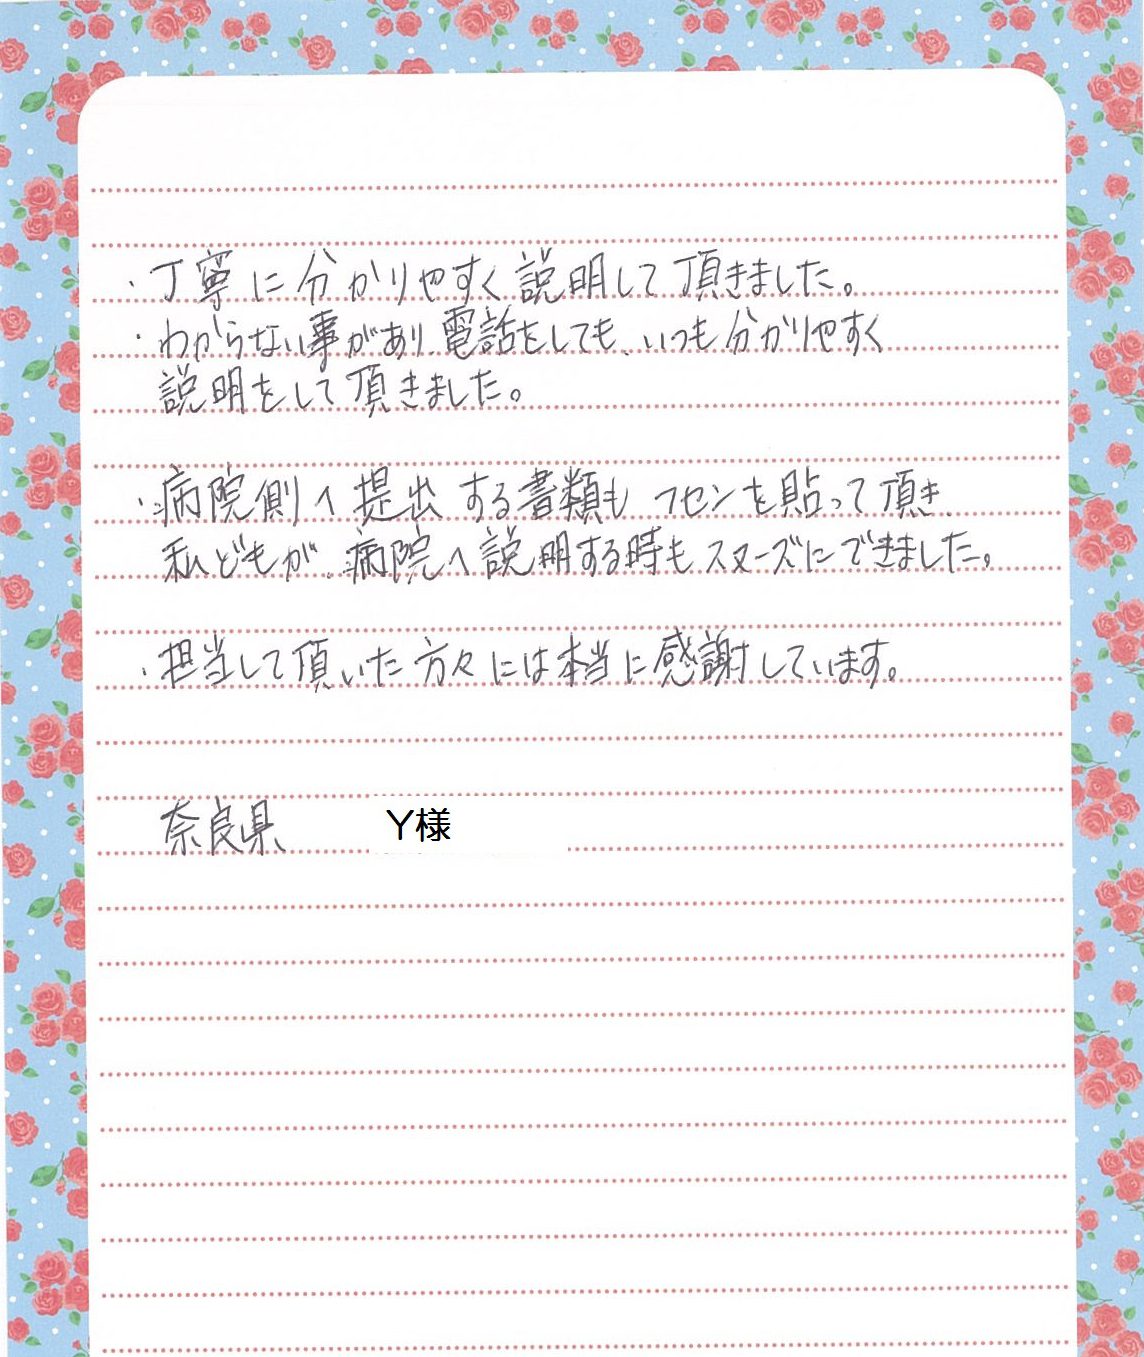 ・丁寧に分かりやすく説明して頂きました。
・わからない事があり、電話をしても、いつも分かりやすく
説明をして頂きました。
・病院側へ提出する書類も フセンを貼って頂き、
私どもが、病院へ説明する時もスムーズにできました。
・担当して頂いた方々には本当に感謝しています。
奈良県 Y様